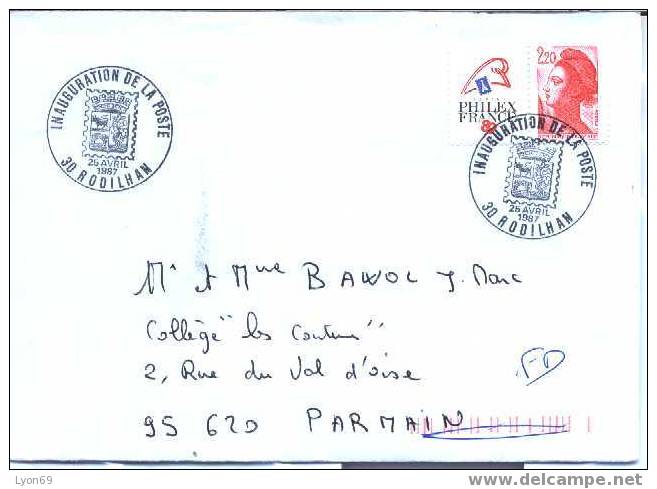 INAUGURATION DE LA POSTE
25 AVRIL
1987
30 RODILHAN
PHILEX
FRANCE
89
2,20
INAUGURATION DE LA POSTE
25 AVRIL
1987
30 RODILHAN
Mr et Mme BAWOL J. Marc
Collège "les Coutures"
2, Rue du Val d'oise
FD
95 620 PARMAIN
Lyon69
www.delcampe.net